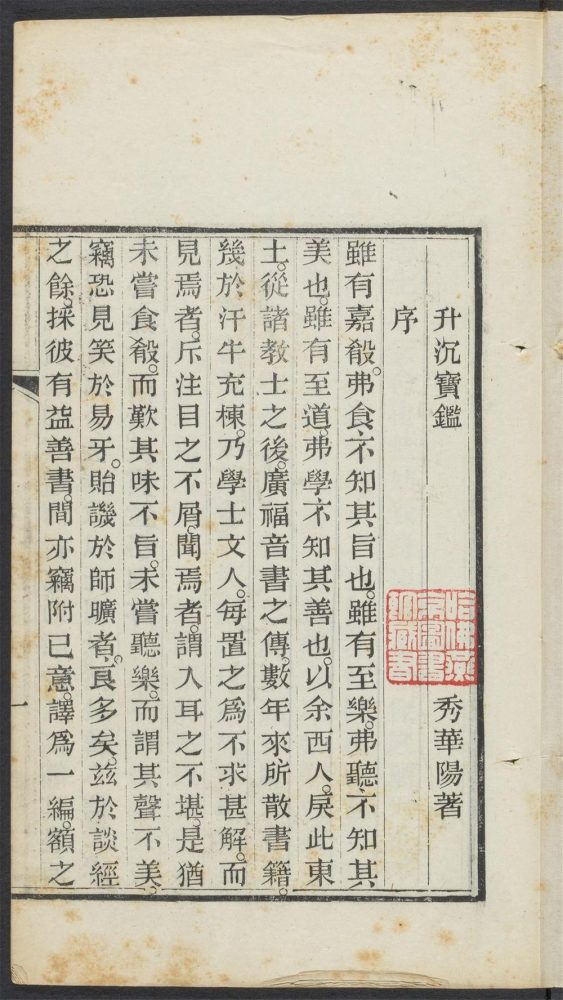 升沉寶鑑
秀華陽著
序
雖有嘉殽。弗食、不知其旨也。雖有至樂。弗聽、不知其
美也。雖有至道。弗學、不知其善也。以余西人。戾此東
土。從諸教士之後。廣福音書之傳。數年來所散書籍。
幾於汗牛充棟。乃學士文人。每置之爲不求甚解。而
見焉者。斥注目之不屑。聞焉者。謂入耳之不堪。是猶
未嘗食殽。而歎其味不旨。未嘗聽樂。而謂其聲不美。
竊恐見笑於易牙。貽譏於師曠者。良多矣。茲於談經
之餘。採彼有益善書。間亦竊附己意。譯爲一編。額之
一
哈佛燕
京圖書
館藏書